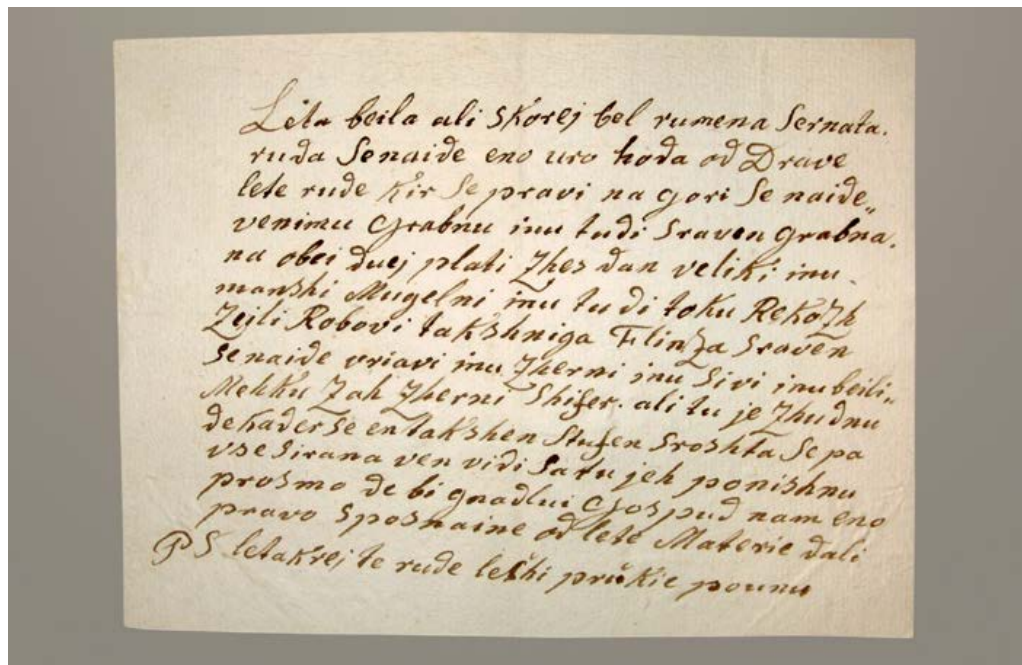 Leta beila ali skorej bel rumena Sernata.
ruda Senaide eno uro hoda od Drave
lete rude kir Se pravi na gori Se naide„
venimu Grabnu inu tudi Sraven grabna.
na obei duej plati Zhes dan veliki inu
manshi Mugelni inu tudi toku Rekozh
Zejli Robovi takshniga Flinza Sraven
senaide vriavi inu Zherni inu Sivi inu beili„
Mehku Zah Zherni Shifer. ali tu je Zhudnu
de kader se en takshen Stufen Sroshta Se pa
vse Sirana ven vidi Sa tu jeh ponishnu
prosmo de bi gnadlui Gospud nam eno
pravo Sposnaine od lete Materie dali
PS letakrej te rude leshi prukie pounu